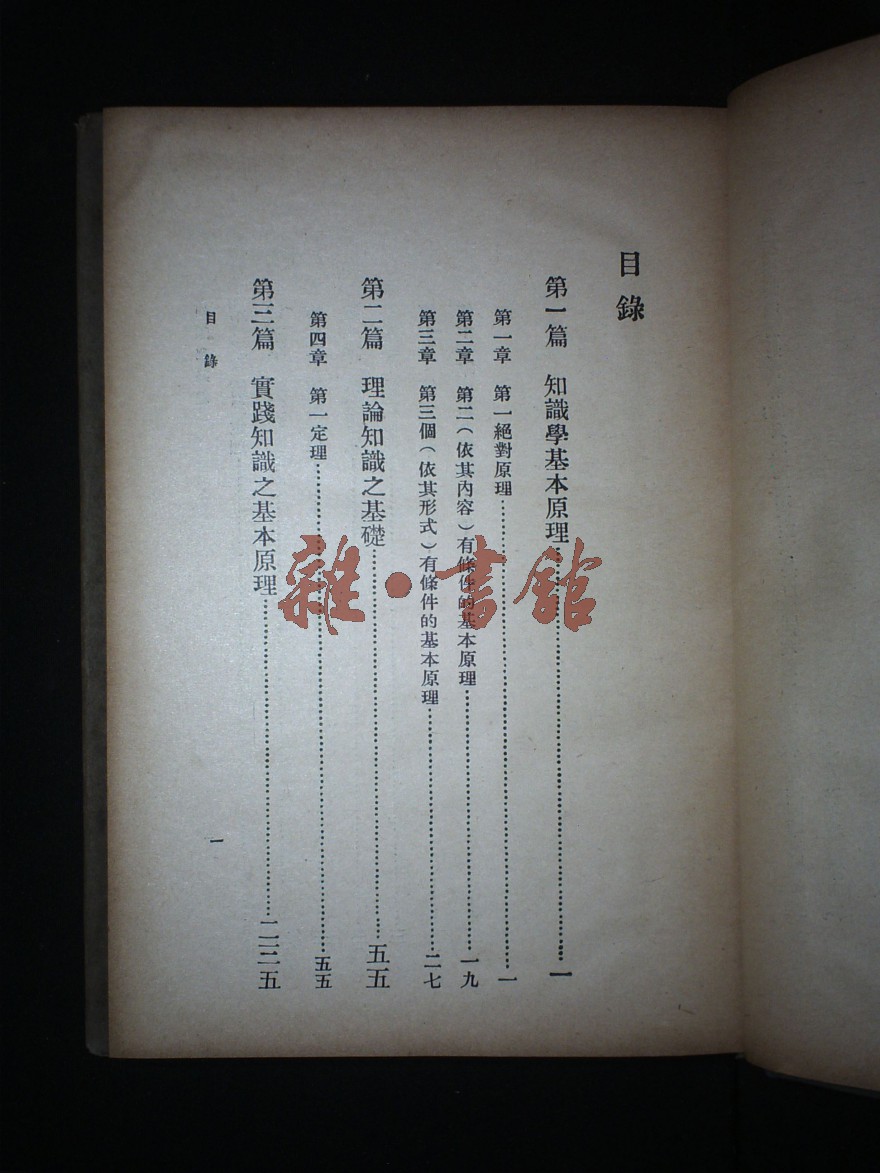 目錄
第一篇 知識學基本原理……一
第一章 第一絕對原理……一
第二章 第二（依其內容）有條件的基本原理……一九
第三章 第三個（依其形式）有條件的基本原理……二七
第二篇 理論知識之基礎……五五
第四章 第一定理……五五
第三篇 實踐知識之基本原理……二三五
目錄
一
雜·書館